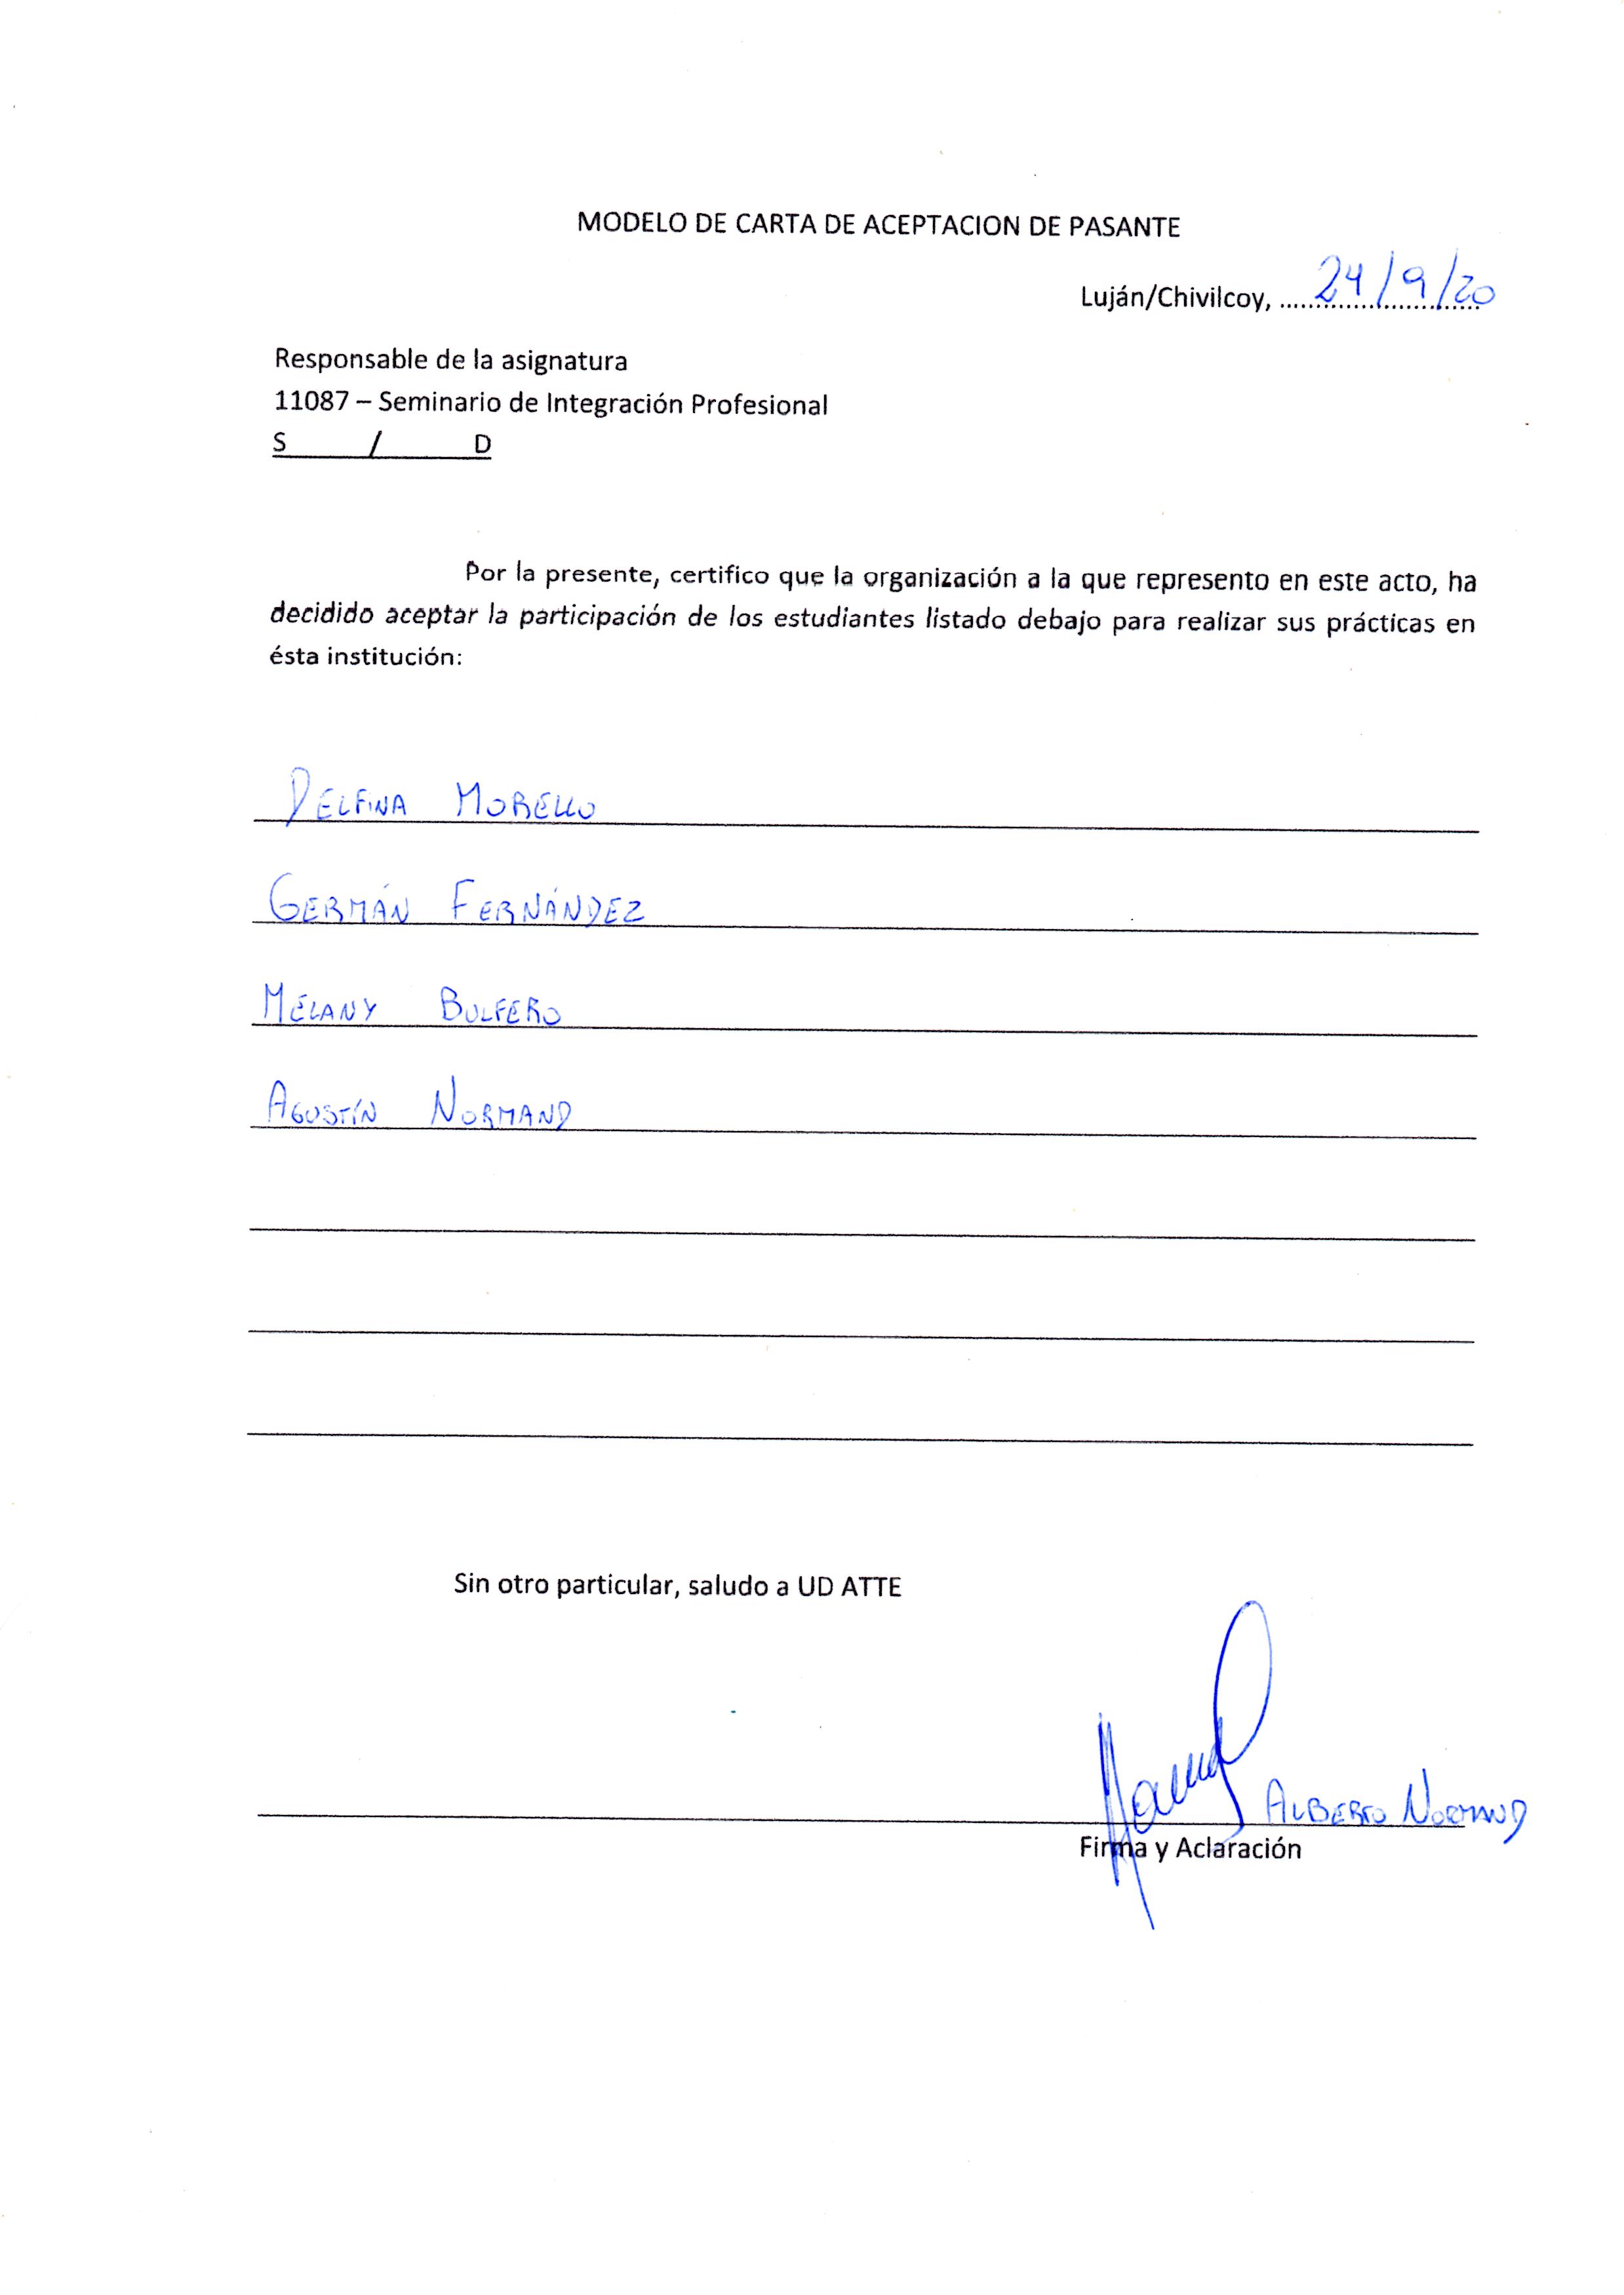 MODELO DE CARTA DE ACEPTACION DE PASANTE
Luján/Chivilcoy, ............................ 24/9/20
Responsable de la asignatura
11087 – Seminario de Integración Profesional
S / D
Por la presente, certifico que la organización a la que represento en este acto, ha
decidido aceptar la participación de los estudiantes listado debajo para realizar sus prácticas en
ésta institución:
DELFINA MORELLO
GERMÁN FERNÁNDEZ
MELANY BULFERO
AGUSTÍN NORMAND
Sin otro particular, saludo a UD ATTE
ALBERTO NORMAND
Firma y Aclaración